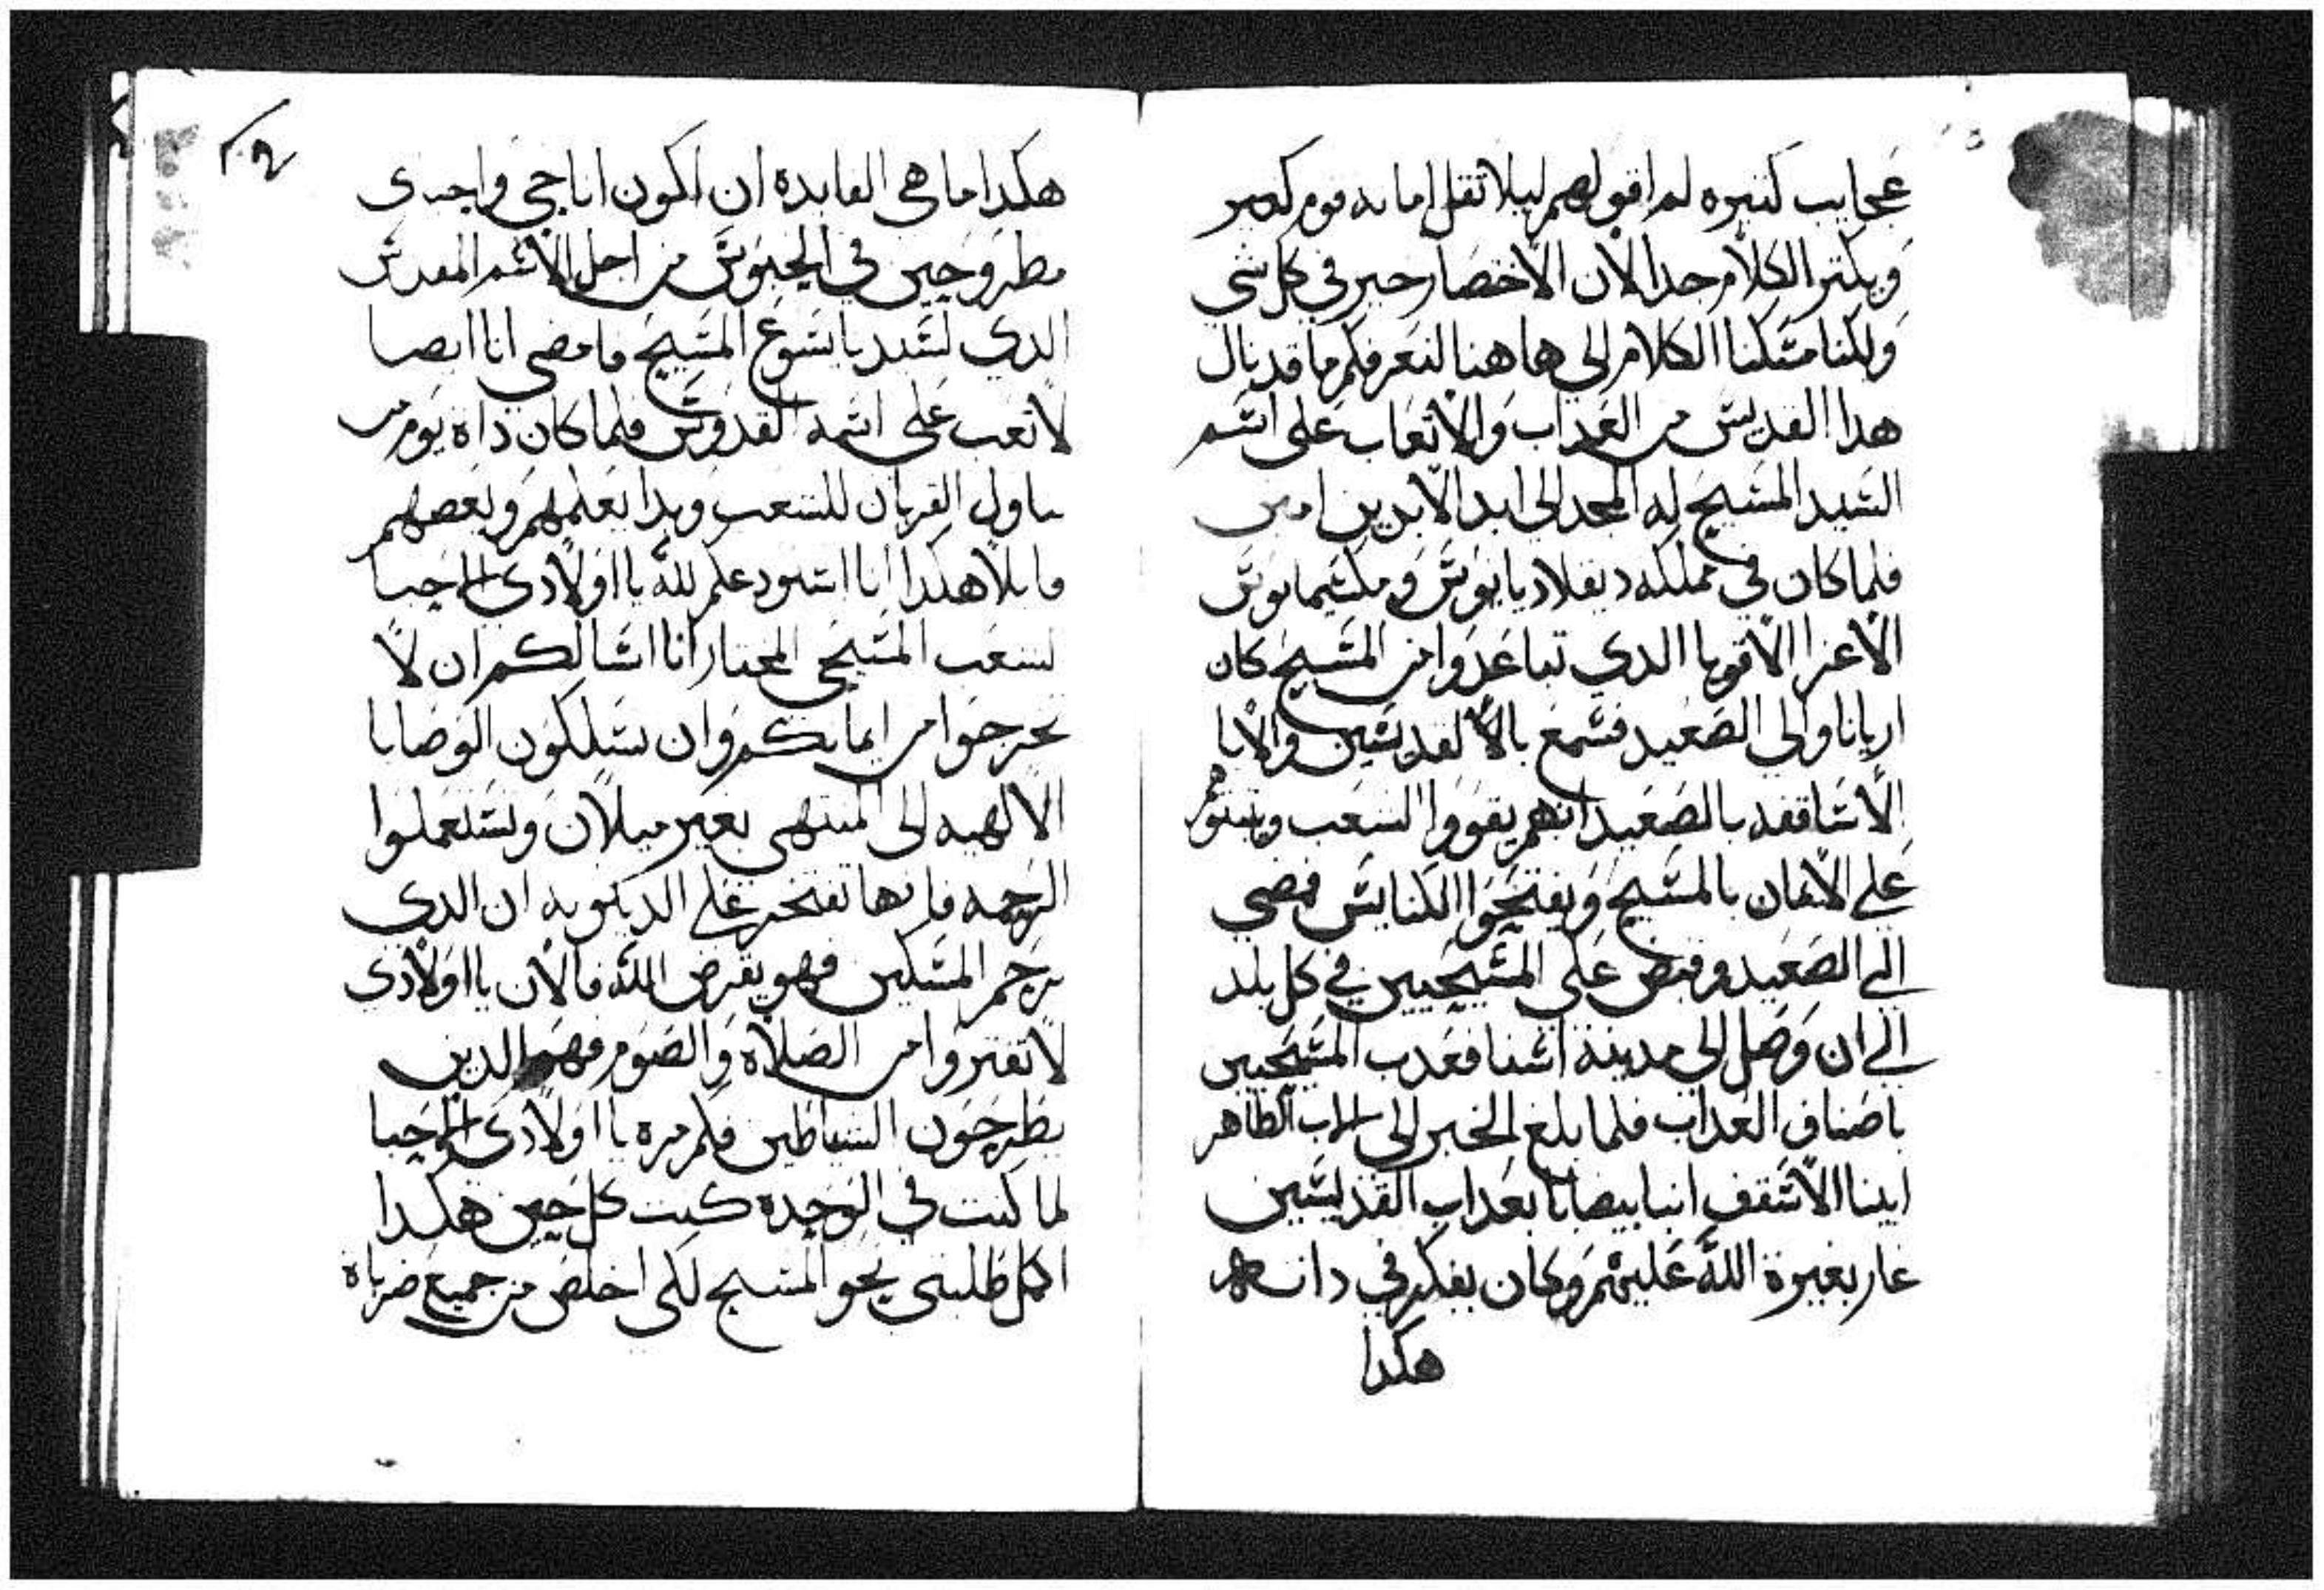 عجايب كتيره لم اقولهم ليلا تقل امانه قوم كتير
ويكتر الكلام جدا لان الاختصار خير في كل شي
ولكنا مسكنا الكلام الى هاهنا لنعرفكم ما قد نال
هدا القديس من العداب والاتعاب على اسم
السيد المسيح له المجد الى ابد الابدين امين
فلما كان في مملكه ديقلاديانوس ومكسيمانوس
الاعزا الاقويا الدي تباعدوا من المسيح كان
اريانا والى الصعيد فسمع بالا القديسين والابا
الاساقفه بالصعيد انهم يقووا الشعب ويتبتوهم
على الايمان بالمسيح ويفتحوا الكنايس فمضى
الى الصعيد وقبض على المسيحيين في كل بلد
الى ان وصل الى مدينة اسنا فعدب المسيحيين
باصناف العداب فلما بلغ الخبر الى الاب الطاهر
ابينا الاسقف انبا بيصانا بعداب القديسين
غار بغيرة الله عليهم وكان يفكر في داته
هكدا
هكدا ما هي الفايده ان اكون انا حي واخوتي
مطروحين في الحبوس من اجل الاسم المقدس
الدي لسيدنا يسوع المسيح فامضى انا ايضا
لاتعب على اسمه القدوس فلما كان داه يوم من
ناول القربان للشعب وبدا يعلمهم ويعضهم
قايلا هكدا انا استودعكم لله يا اولادي الاحبا
لشعب المسيحي المختار انا اسالكم ان لا
تخرجوا من ايمانكم وان تسلكون الوصايا
الالهيه الى المنتهى بغير ميلان وتستعملوا
الرحمه فانها تفتخر على الدينونه ان الدي
يرحم المسكين فهو يقرض الله فالان يا اولادي
لا تفتروا من الصلاه والصوم فهما الدين
يطرحون الشياطين فكم مره يا اولادي الاحبا
لما كنت في الوحده كنت كل حين هكدا
اكمل طلبتى نحو المسيح لكى اخلص من جميع ضرباه